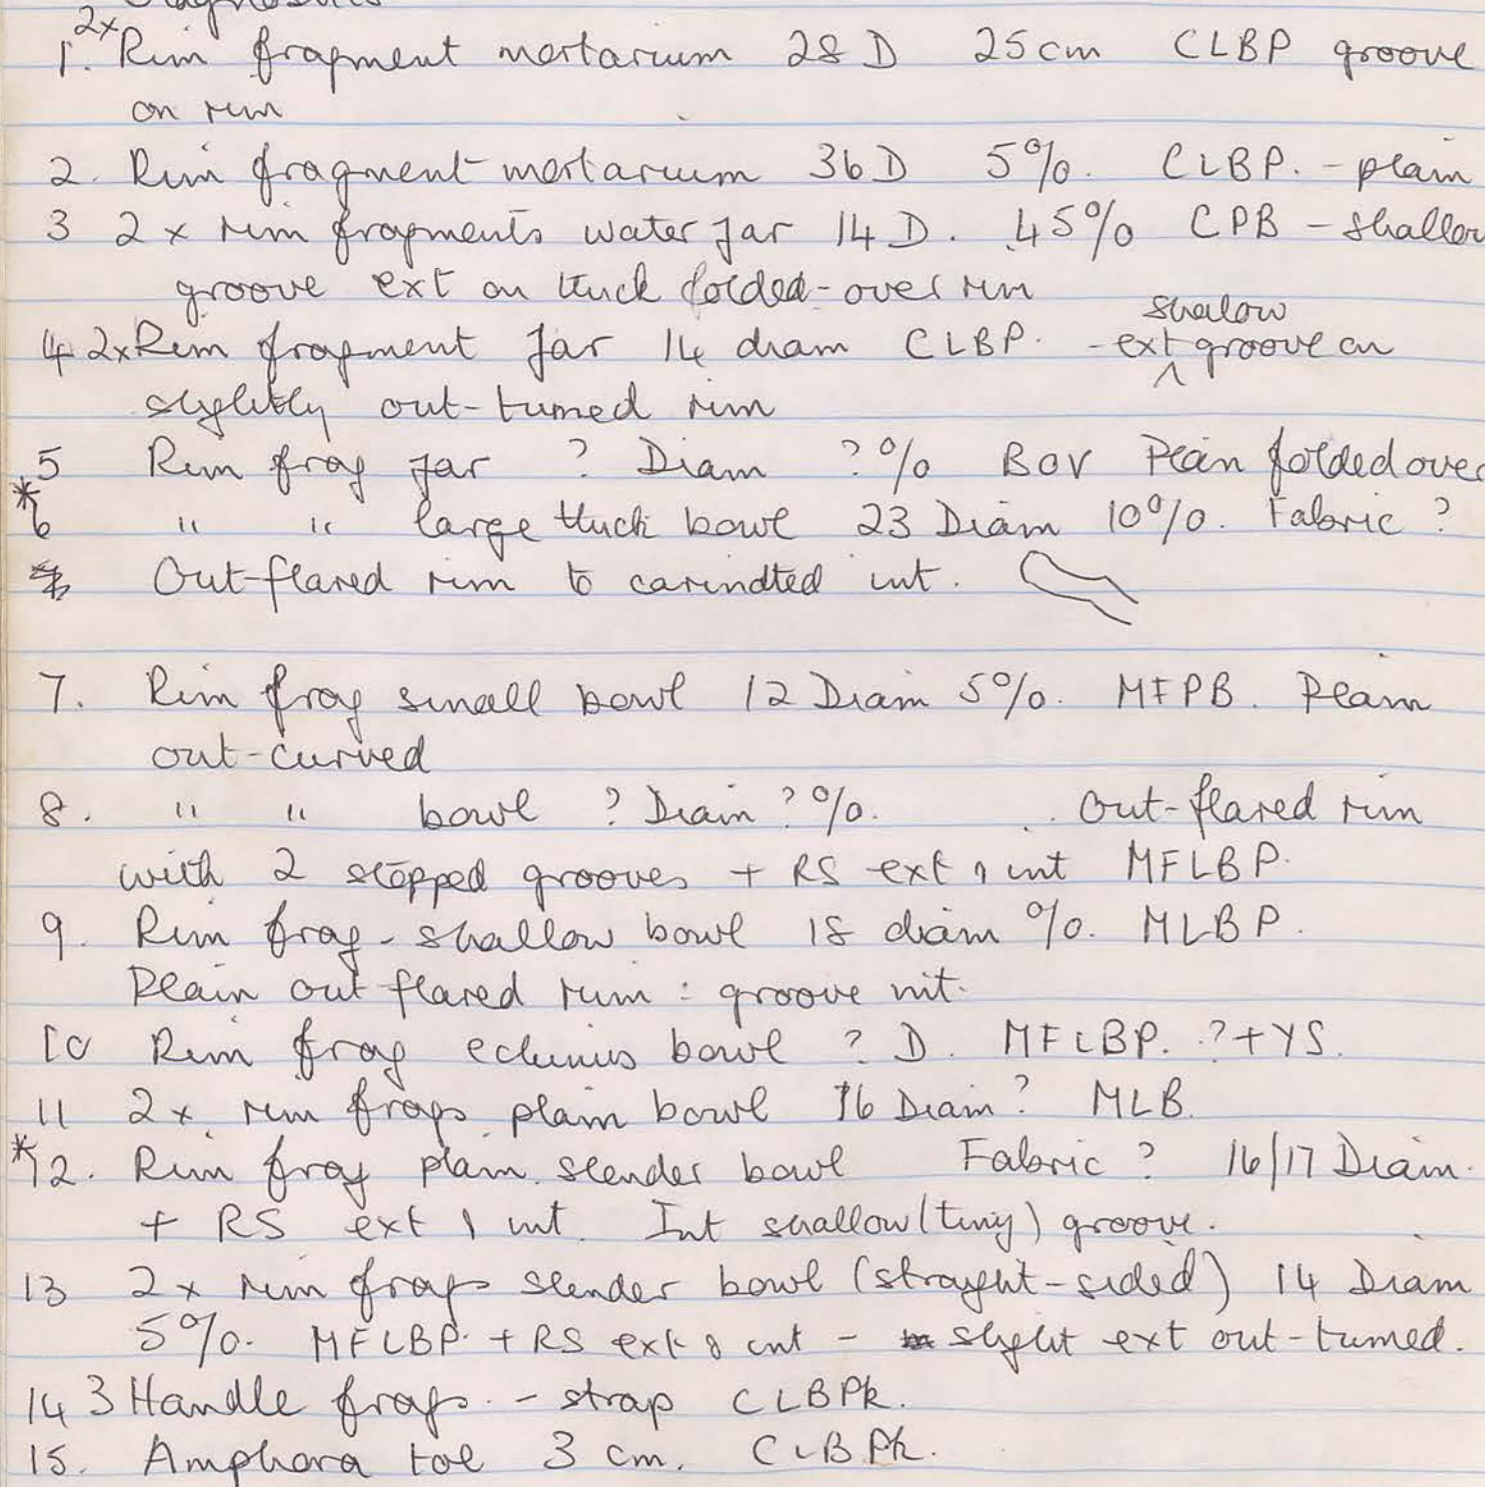 Diagnostics
1. 2x Rim fragment mortarium 28 D 25cm CLBP groove
on rim
2. Rim fragment mortarium 36 D 5%. CLBP. - plain
3 2 x rim fragments water jar 14 D. 45% CPB - shallow
groove ext on thick folded-over rim
4 2x Rim fragment Jar 14 diam CLBP. - ext shalow groove on
slightly out-turned rim
5 Rim frag jar ? Diam ?% BOV Plain folded over
*6 " " large thick bowl 23 Diam 10%. Fabric ?
Out-flared rim to carindted int.
7. Rim frag small bowl 12 Diam 5%. MFPB. Plain
out-curved
8. " " bowl ? Diam ?%. Out-flared rim
with 2 stepped grooves + RS ext & int MFLBP.
9. Rim frag - shallow bowl 18 diam %. MLBP.
Plain out flared rim : groove int.
10 Rim frag echinus bowl ? D. MFLBP. ?+YS.
11 2x rim frags plain bowl 16 Diam? MLB.
*12. Rim frag plain slender bowl Fabric ? 16/17 Diam.
+ RS ext & int. Int shallow (tiny) groove.
13 2x rim frags slender bowl (straight-sided) 14 Diam
5%. MFLBP. + RS ext & int - slight ext out-turned.
14 3 Handle frags. - strap CLBPk.
15. Amphora toe 3 cm. CLBPk.